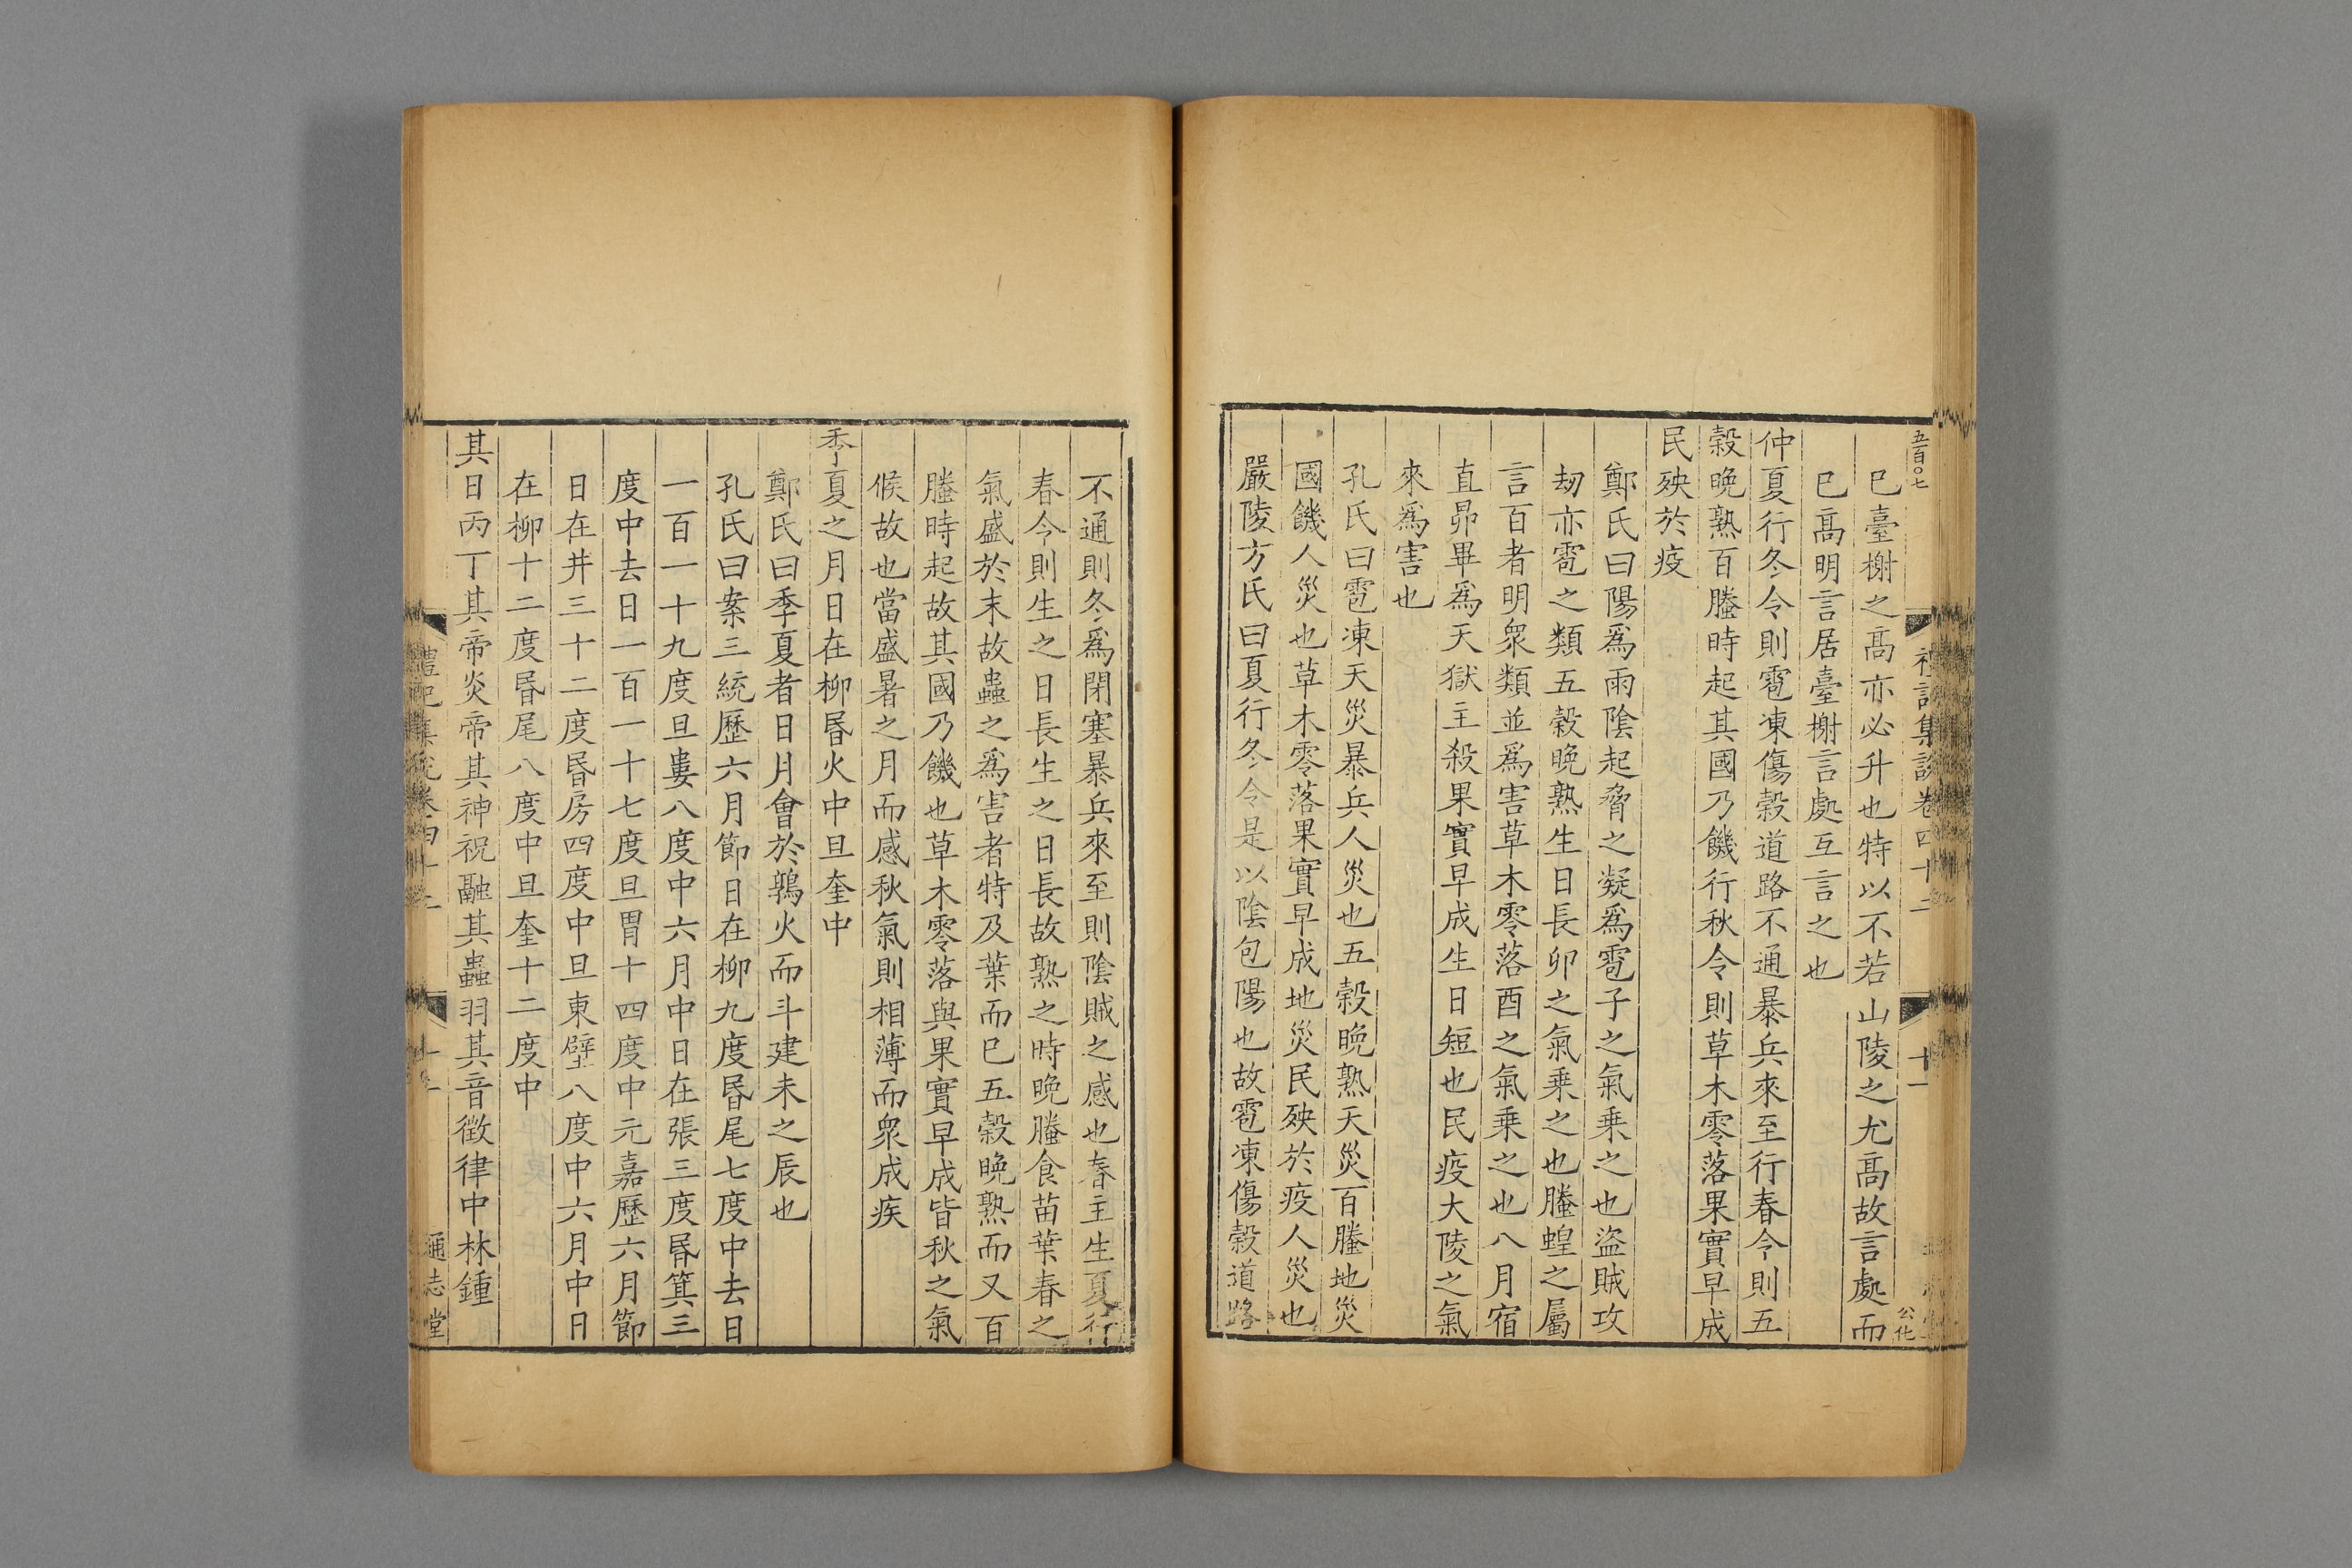 五百〇七
禮記集說卷四十二
十一
公化
巳臺榭之髙亦必升也特以不若山陵之尤髙故言處而
巳髙明言居臺榭言處互言之也
仲夏行冬令則雹凍傷穀道路不通暴兵來至行春令則五
穀晚熟百螣時起其國乃饑行秋令則草木零落果實早成
民殃於疫
鄭氏曰陽爲雨陰起脅之凝爲雹子之氣乗之也盜賊攻
刼亦雹之類五穀晚熟生日長卯之氣乗之也螣蝗之屬
言百者明衆類並爲害草木零落酉之氣乗之也八月宿
直昴畢爲天獄主殺果實早成生日短也民疫大陵之氣
來爲害也
孔氏曰雹凍天災暴兵人災也五穀晚熟天災百螣地災
國饑人災也草木零落果實早成地災民殃於疫人災也
嚴陵方氏曰夏行冬令是以陰包陽也故雹凍傷穀道路
不通則冬爲閉塞暴兵來至則陰賊之感也春主生夏行
春令則生之日長生之日長故熟之時晚螣食苗葉春之
氣盛於末故蟲之爲害者特及葉而巳五穀晚熟而又百
螣時起故其國乃饑也草木零落與果實早成皆秋之氣
候故也當盛暑之月而感秋氣則相薄而衆成疾
季夏之月日在柳昬火中旦奎中
鄭氏曰季夏者日月會於鶉火而斗建未之辰也
孔氏曰案三統歷六月節日在柳九度昬尾七度中去日
一百一十九度旦婁八度中六月中日在張三度昬箕三
度中去日一百一十七度旦胃十四度中元嘉歷六月節
日在井三十二度昬房四度中旦東壁八度中六月中日
在柳十二度昬尾八度中旦奎十二度中
其日丙丁其帝炎帝其神祝融其蟲羽其音徵律中林鍾
禮記集說卷四十二
十一
通志堂